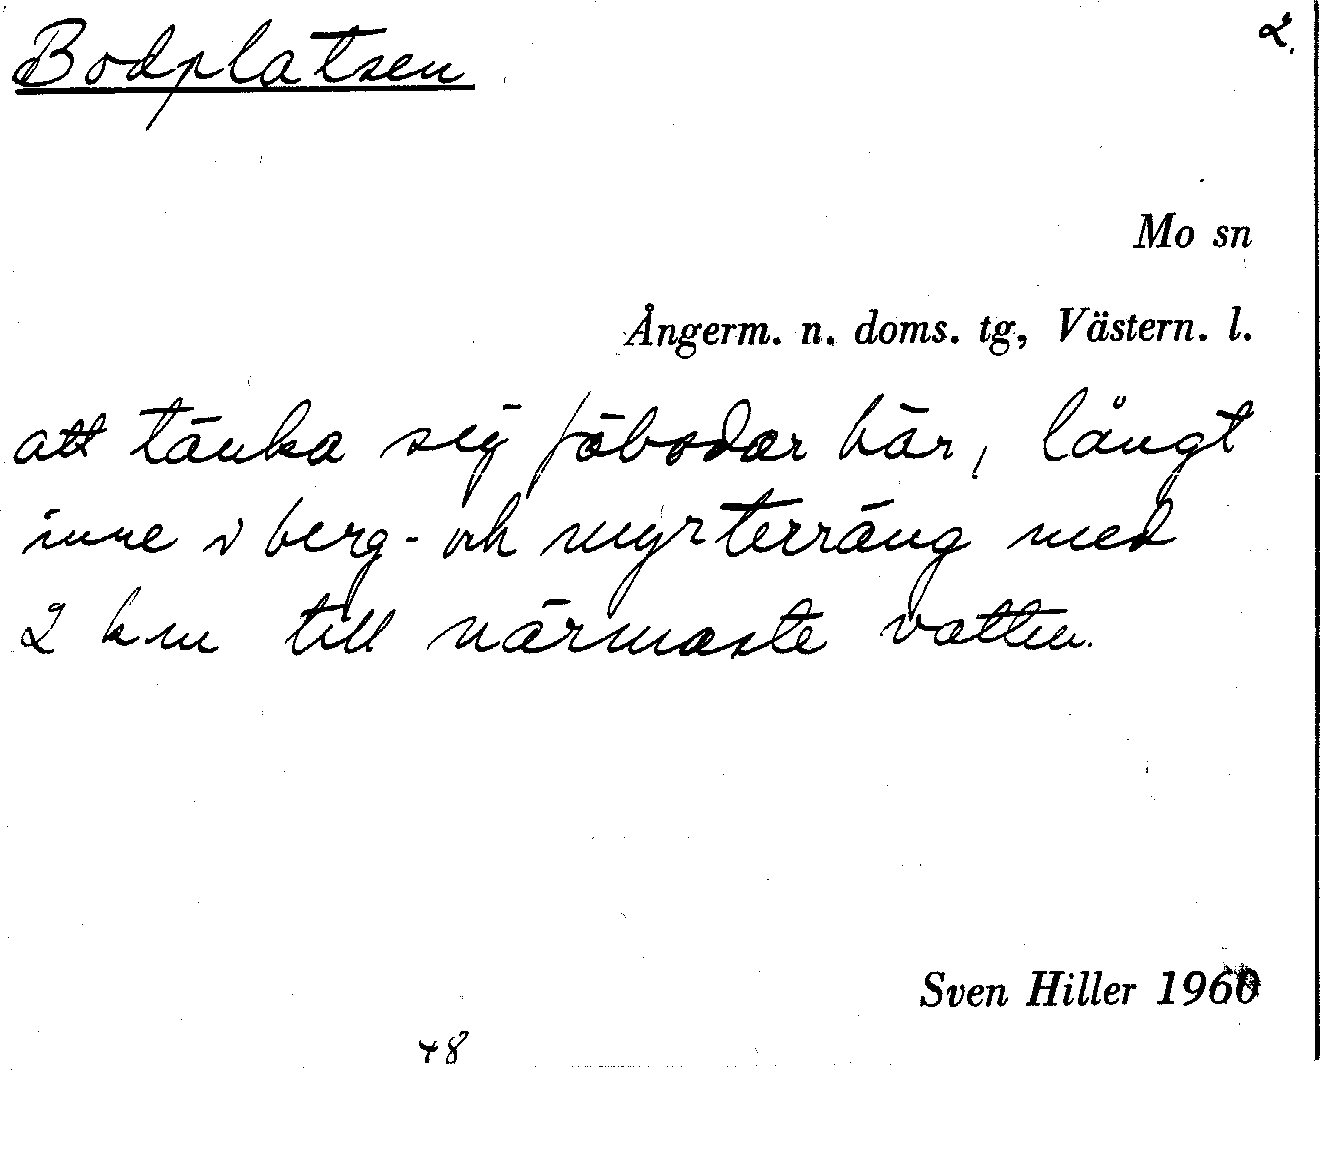 Bodplatsen
2.
Mo sn
Ångerm. n. doms. tg, Västern. l.
att tänka sig fäbodar här, långt
inne i berg- och myrterräng med
2 km till närmaste vatten.
Sven Hiller 1960
48